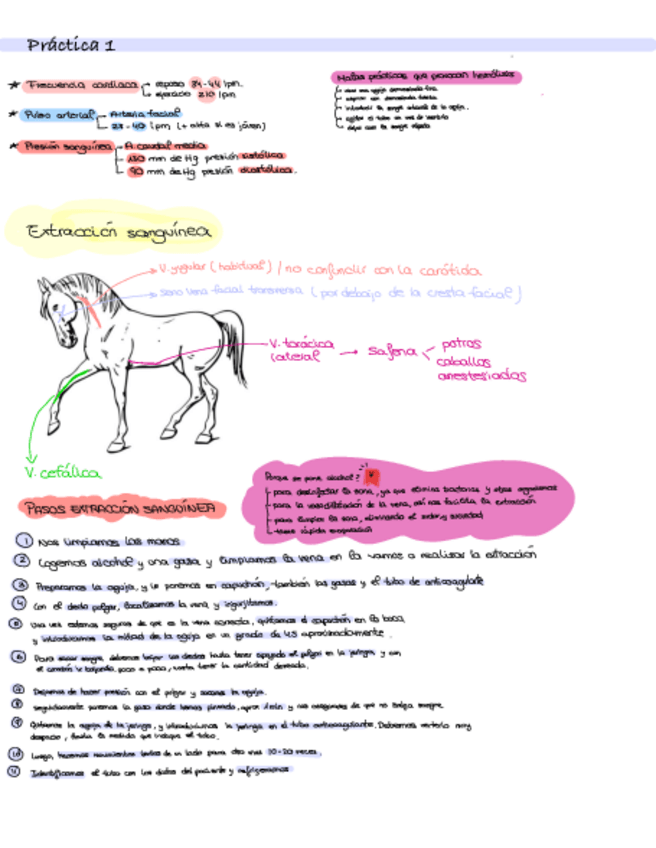 Práctica 1
★ Frecuencia cardíaca
reposo 24-44 lpm.
ejercicio 210 lpm
★ Pulso arterial
Arteria facial
28-40 lpm (+ alta si es jóven)
★ Presión sanguínea
A. caudal media
130 mm de Hg presión sistólica
90 mm de Hg presión diastólica.
Malas prácticas que provocan hemólisis
usar una aguja demasiado fina
Extracción sanguínea
V. yugular (habitual) / no confundir con la carótida
Seno vena facial transversa (por debajo de la cresta facial)
V. torácica lateral → Safena
potros
caballos anestesiados
V. cefálica
Porque se pone alcohol?
para desinfectar la zona, ya que elimina bacterias y otros
para la vasodilatación de la vena, así nos facilita la extracción
para limpiar la zona, eliminando el sudor y suciedad
tiene rápida evaporación
PASOS EXTRACCIÓN SANGUÍNEA
1 Nos limpiamos las manos
2 Cogemos alcohol y una gasa y limpiamos la vena en la vamos a realizar la extracción
3 Preparamos la aguja, y le ponemos en capuchón, también las gasas y el tubo de anticoagulante
4 Con el dedo pulgar, localizamos la vena, y ingurjitamos.
Una vez estemos seguros de que es la vena correcta, quitamos el capuchón en la boca,
y introducimos la mitad de la aguja en un grado de 45 aproximadamente.
6 Para sacar sangre, debemos
poco a poco, hasta tener la cantidad deseada.
Dejamos de hacer presión con el pulgar y sacamos la aguja.
8 Seguidamente ponemos la gasa donde hemos pinchado, aprox 1min y nos aseguramos de que no salga sangre.
9 Quitamos la aguja de la jeringa, y introducimos la jeringa en el tubo anticoagulante. Debemos verterlo muy
despacio, hasta la medida que indique el tubo.
10 Luego, hacemos movimientos lentos de un lado para otro unas 10-20 veces.
11 Identificamos el tubo con los datos del paciente y refrigeramos